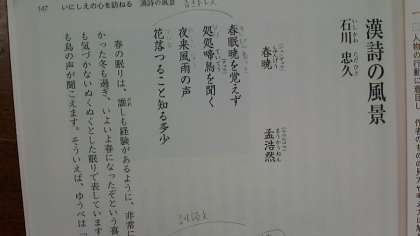 147 いにしえの心を訪ねる 漢詩の風景
漢詩の風景
石川 忠久
春暁
孟浩然
春眠暁を覚えず
処処啼鳥を聞く
夜来風雨の声
花落つること知る多少
春の眠りは、誰しも経験があるように、非常に
かった冬も過ぎ、いよいよ春になったぞという喜
も気づかないぬくぬくとした眠りで表しています
も鳥の声が聞こえます。そういえば、ゆうべは